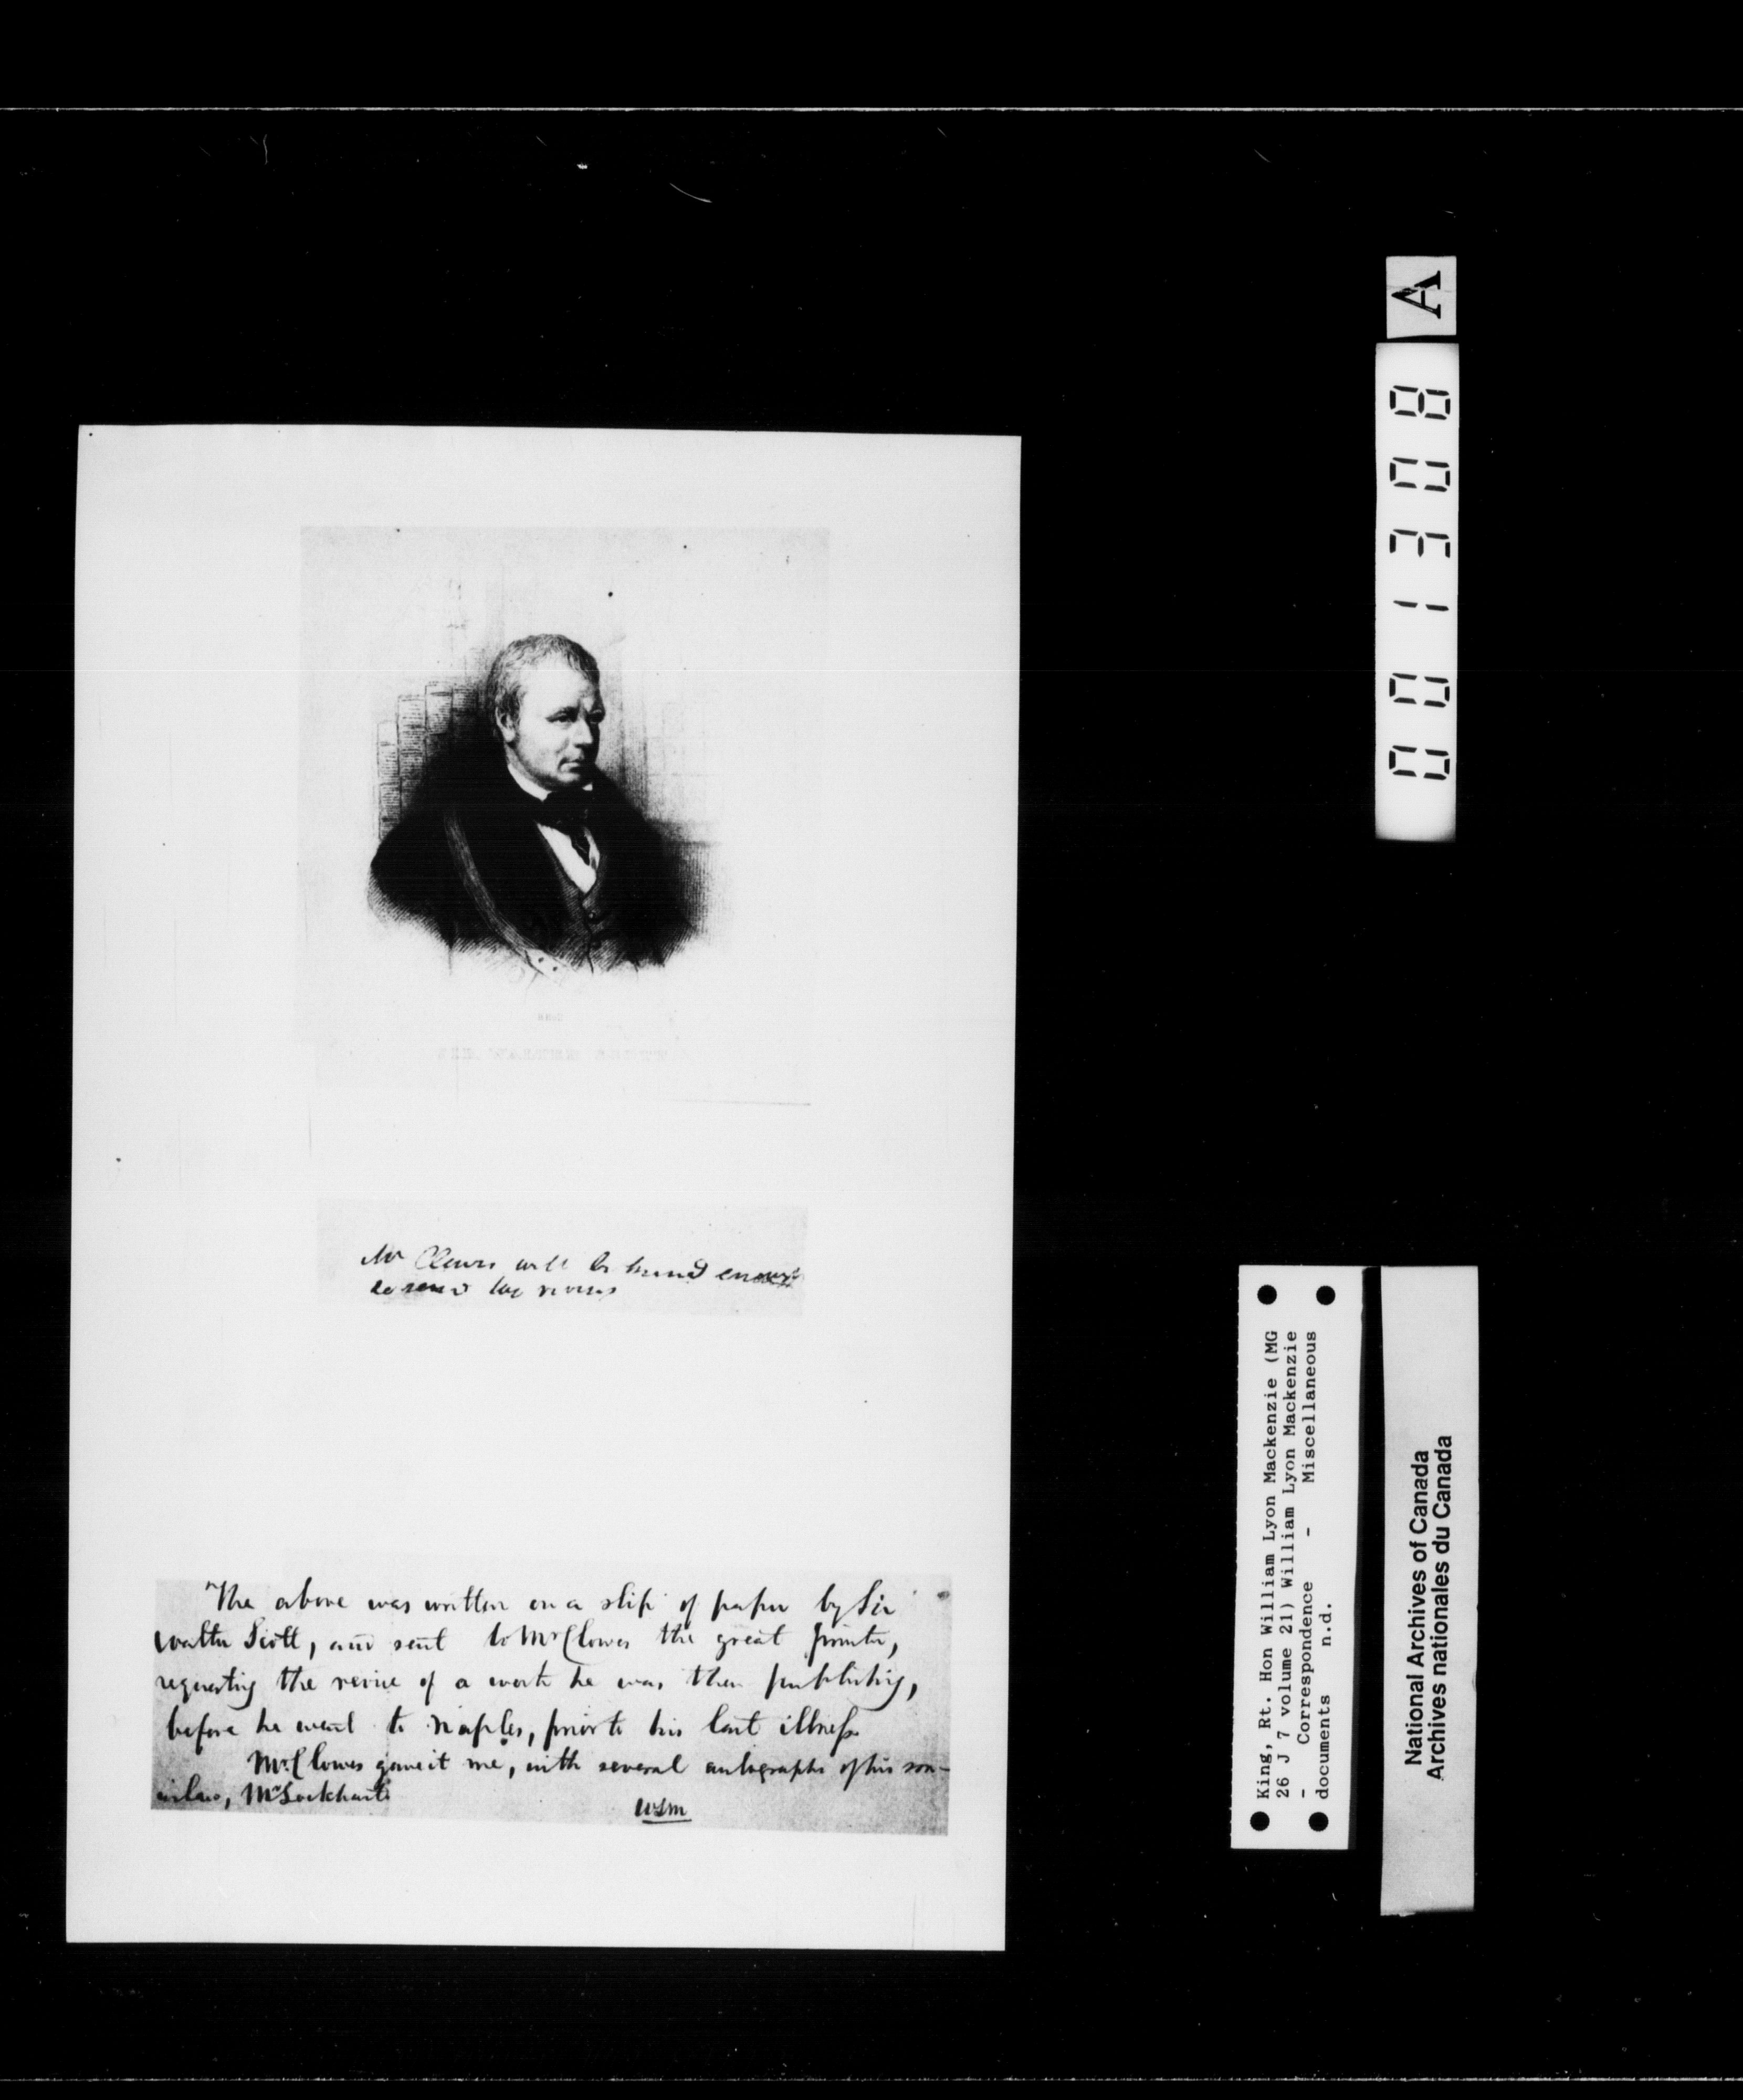 SIR WALTER SCOTT
Mr Clowes will be kind enough
to send the revises
The above was written on a slip of paper by Sir
Walter Scott, and sent to Mr Clowes the great printer,
requesting the revise of a work he was then publishing,
before he went to Naples, prior to his last illness.
Mr. Clowes gave it me, with several autographs of his son-
inlaw, Mr Lockhart.
WLM
A
001308
King, Rt. Hon William Lyon Mackenzie (MG
26 J 7 volume 21) William Lyon Mackenzie
- Correspondence - Miscellaneous
documents n.d.
National Archives of Canada
Archives nationales du Canada